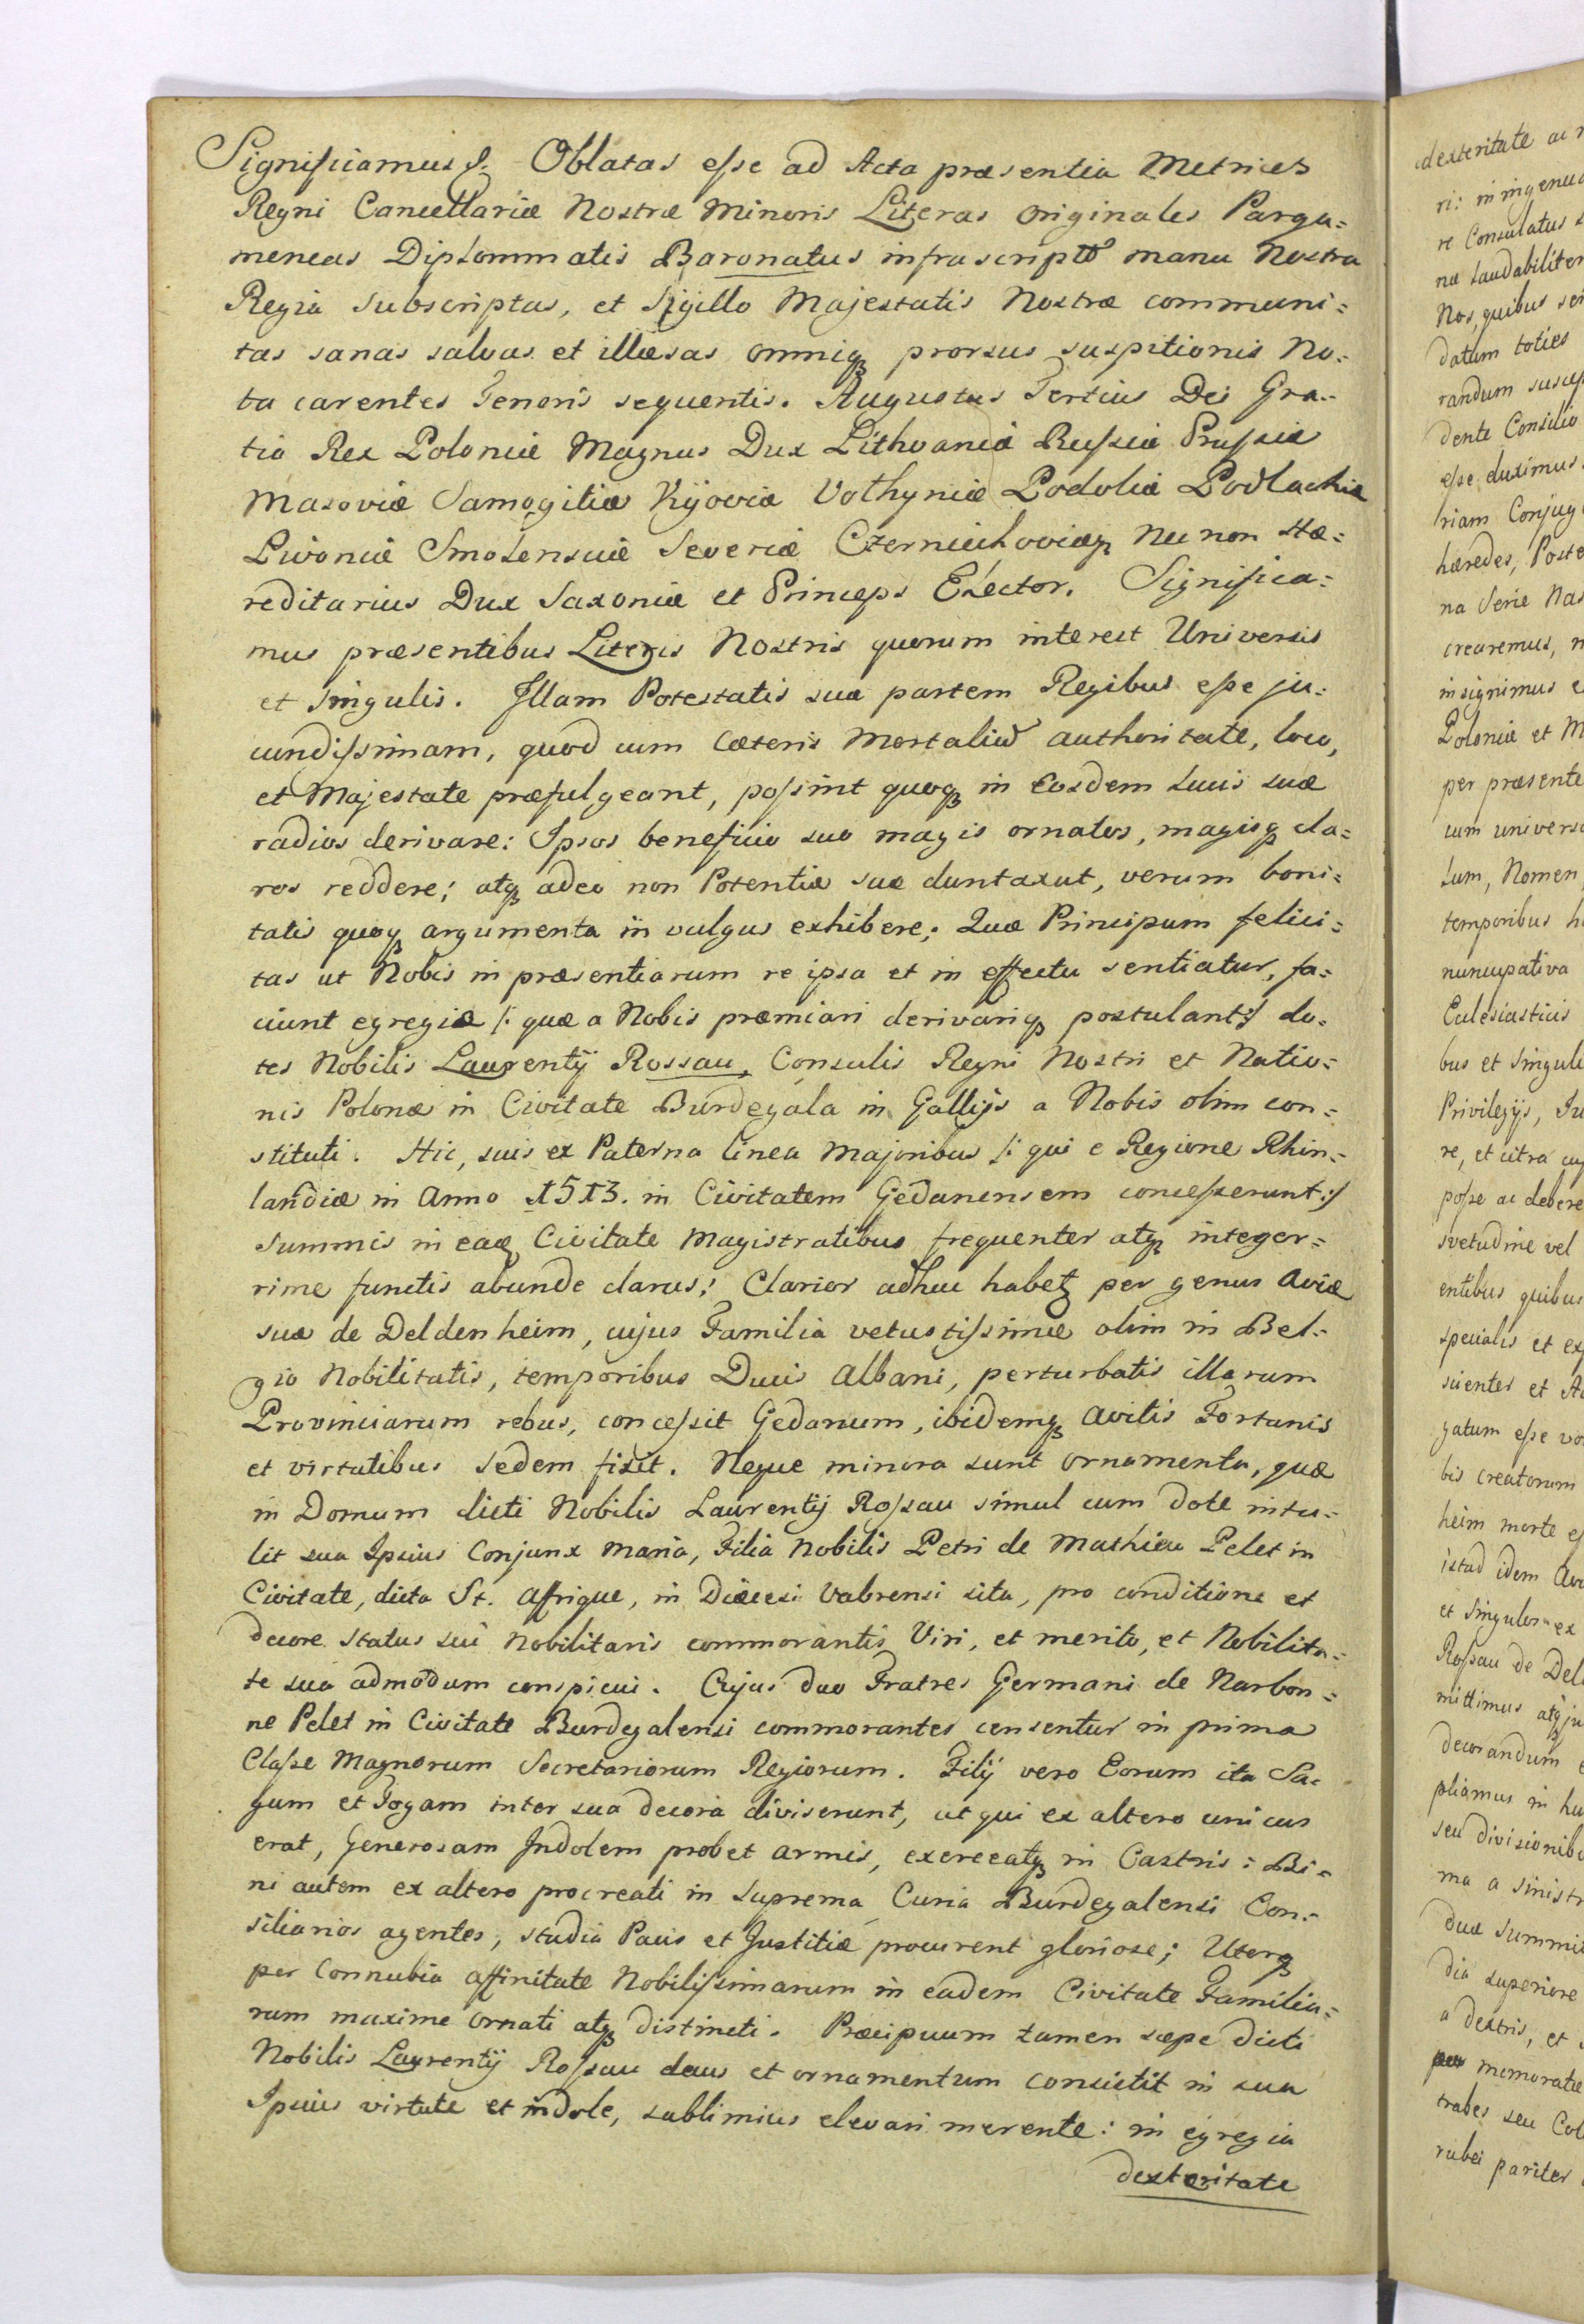 Significamus &. Oblatas esse ad Acta præsentia Metrices
Regni Cancellariæ Nostræ Minoris Literas originales Parga=
meneas Diplommatis Baronatus infrascripto manu Nostra
Regia subscriptas, et Sigillo Majestatis Nostræ communi=
tas sanas salvas et illæsas omniq prorsus suspitionis No=
ta carentes Tenoris sequentis. Augustus Tertius Dei Gra=
tia Rex Poloniæ Magnus Dux Lithvaniæ Russiæ Prussiæ
Masoviæ Samogitiæ Kijoviæ Volhyniæ Podoliæ Podlachiæ
Livoniæ Smolensciæ Severiæ Czerniechoviæq nec non Hæ=
reditarius Dux Saxoniæ et Princeps Elector. Significa=
mus præsentibus Literis Nostris quorum interest Universis
et singulis. Illam Potestatis suæ partem Regibus esse ju=
cundissimam, quod cum cæteris Mortaliū authoritate, loco,
et Majestate præfulgeant, possint quoq in Eosdem lucis suæ
radios derivare: Ipsos beneficio suo magis ornatos, magisq cla=
ros reddere; atq adeo non Potentiæ suæ duntaxat, verum boni=
tatis quoq argumenta in vulgus exhibere; Quæ Principum felici=
tas ut Nobis in præsentiarum re ipsa et in effectu sentiatur, fa=
ciunt egregiæ /: quæ a Nobis præmiari derivariq postulant :/ do=
tes Nobilis Laurentij Rossau, Consulis Regni Nostri et Natio=
nis Polonæ in Civitate Burdegala in Gallijs a Nobis olim con=
stituti. Hic, suis ex Paterna linea Majoribus /: qui e Regione Rhin=
landiæ in Anno 1513. in Civitatem Gedanensem concesserunt :/
summis in eaq Civitate Magistratibus frequenter atq integer=
rime functis abunde clarus; Clarior adhuc habet per genus Aviæ
suæ de Deldenheim, cujus Familia vetustissimæ olim in Bel=
gio Nobilitatis, temporibus Ducis Albani, perturbatis illarum
Provinciarum rebus, concessit Gedanum, ibidemq avitis Fortunis
et virtutibus sedem fixit. Neque minora sunt ornamenta, quæ
in Domum dicti Nobilis Laurentij Rossau simul cum dote intu=
lit sua Ipsius Conjunx Maria, Filia Nobilis Petri de Mathieu Pelet in
Civitate, dicta St. Affrique, in Diæcesi Vabrensi sita, pro conditione et
decore status sui Nobilitaris commorantis Viri, et merito, et Nobilita=
te sua admodum conspicui. Cujus duo Fratres Germani de Narbon=
ne Pelet in Civitate Burdegalensi commorantes censentur in prima
Classe Magnorum Secretariorum Regiorum. Filij vero Eorum ita Sa=
gum et Togam inter sua decora diviserunt, ut qui ex altero unicus
erat, Generosam Indolem probet armis, exerceatq in Castris: Bi=
ni autem ex altero procreati in suprema Curia Burdegalensi Con=
siliarios agentes, studia Pacis et Justitiæ procurent gloriose; Uterq
per Connubia affinitate Nobilissimarum in eadem Civitate Familia=
rum maxime ornati atq distincti. Præcipuum tamen sæpe dicti
Nobilis Laurentij Rossau decus et ornamentum consistit in sua
Ipsius virtute et indole, sublimius elevari merente: in egregia
dexteritate
dexteritate ac
ri: in ingenua
re Consulatus
na laudabiliter
Nos, quibus
datum toties
randum
dente Consilio
esse duximus
riam
hæredes,
na Serie
crearemus,
insignimus
Poloniæ et M
per præsente
cum univers
lum, Nomen
temporibus
nuncupativa
Eclesiasticis
bus et singul
Privilegijs,
re, et citra
posse ac debere
svetudine vel
entibus quibus
specialis et
scientes et
gatum esse
bis creatorum
heim morte
istud idem
et singulor ex
Rossau de Del
mittimus atq
decorandum
pliamus in
seu divisionib
ma a sinistr
duæ
dia superiore
a dextris, et
memoratæ
trabes seu Col
rubei pariter